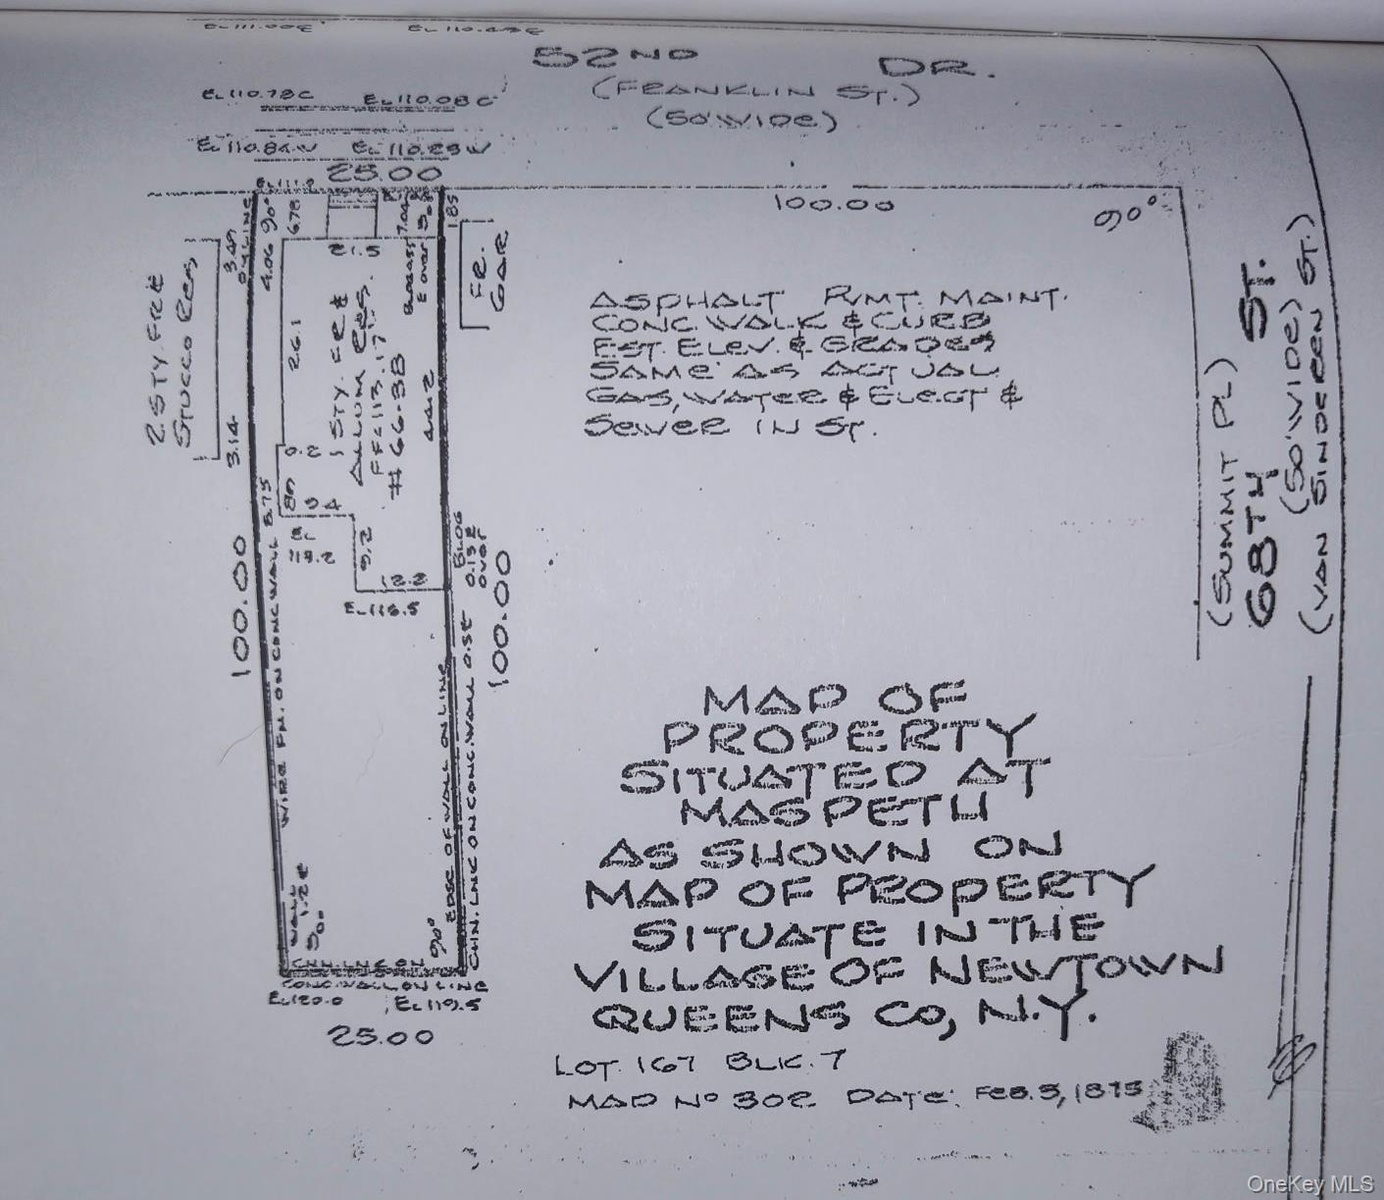 52ND DR.
(FRANKLIN ST.)
(50' WIDE)
EL 110.78C EL 110.08C
EL 110.84W EL 110.23W
25.00
EL 111.0
100.00
90°
90°
6.78
1.85
3.49
ON LINE
4.06
21.5
FR.
GAR.
2 STY FRE
STUCCO RES.
26.1
1 STY. FRE
ALLUM RES.
FFE 113.17
#66-38
44.2
3.14
0.2
9.4
EL
9.2
12.2
EL 118.5
BLDG
0.13E
OVER
100.00
100.00
WIRE FN. ON CONC WALL
EDGE OF WALL ON LINE
CHN. LNK ON CONC. WALL 0.5E
WALL
1.2E
90°
90°
CHN. LNK ON
CONC WALL ON LINE
EL 120.0 EL 119.5
25.00
ASPHALT P/MT. MAINT.
CONC. WALK & CURB
EST. ELEV. & GRADES
SAME AS ACTUAL
GAS, WATER & ELECT &
SEWER IN ST.
(SUMMIT PL)
68TH ST.
(50' WIDE)
(VAN SINDEREN ST.)
MAP OF
PROPERTY
SITUATED AT
MASPETH
AS SHOWN ON
MAP OF PROPERTY
SITUATE IN THE
VILLAGE OF NEWTOWN
QUEENS CO, N.Y.
LOT. 167 BLK. 7
MAP No 302 DATE: FEB. 3, 1873
OneKey MLS